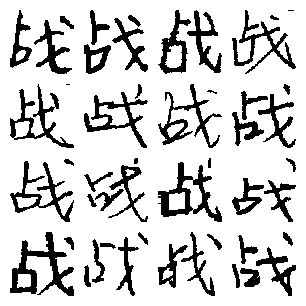 战战战战
战战战战
战战战战
战战战战